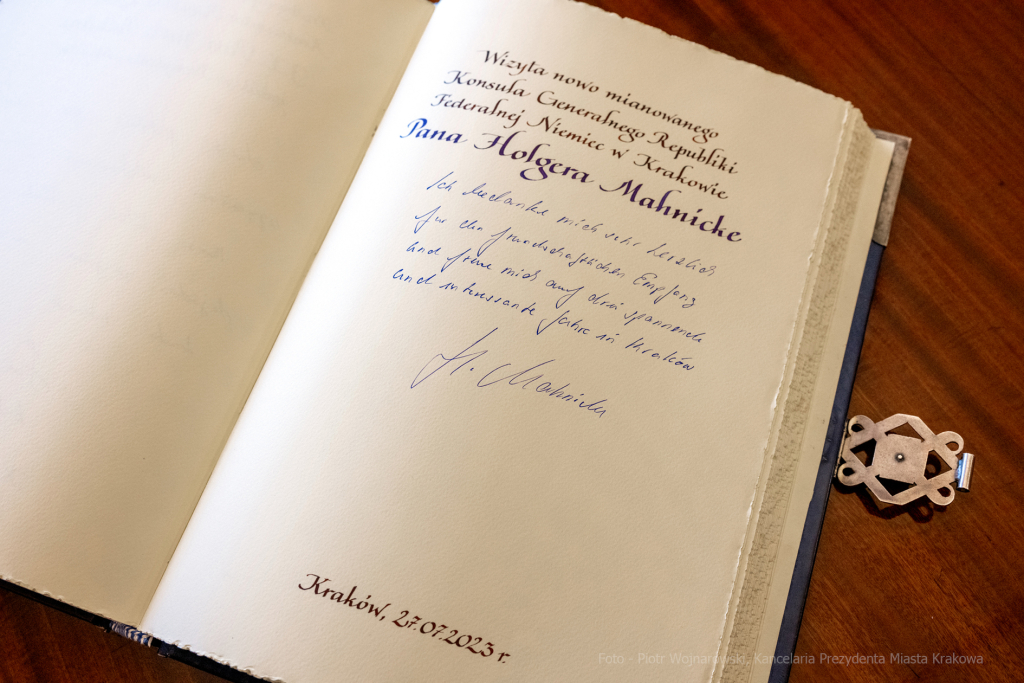 Wizyta nowo mianowanego
Konsula Generalnego Republiki
Federalnej Niemiec w Krakowie
Pana Holgera Mahnicke
Ich bedanke mich sehr herzlich
für den freundschaftlichen Empfang
und freue mich auf drei spannende
und interessante Jahre in Kraków
H. Mahnicke
Kraków, 27.07.2023 r.
Foto - Piotr Wojnarowski, Kancelaria Prezydenta Miasta Krakowa